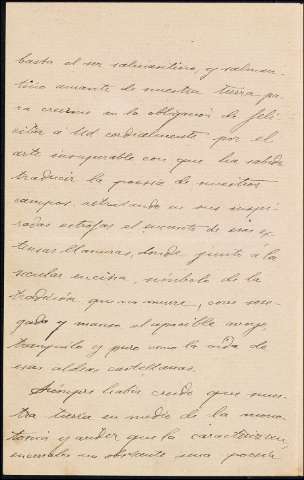 basta el ser salmantino, y salman-
tino amante de nuestra tierra pa-
ra creerme en la obligación de feli-
citar a Ud cordialmente por el
arte insuperable con que ha sabido
traducir la poesía de nuestros
campos, retratando en sus inspi-
radas estrofas el encanto de esas ex-
tensas llanuras, donde, junto á la
secular encina, símbolo de la
tradición que no muere, corre sose-
gado y manso el apacible arroyo,
tranquilo y puro como la vida de
esas aldeas castellanas.
Siempre había creido que nues-
tra tierra en medio de la mono-
tonía y aridez que la caracterizan,
encerraba no obstante una poesía